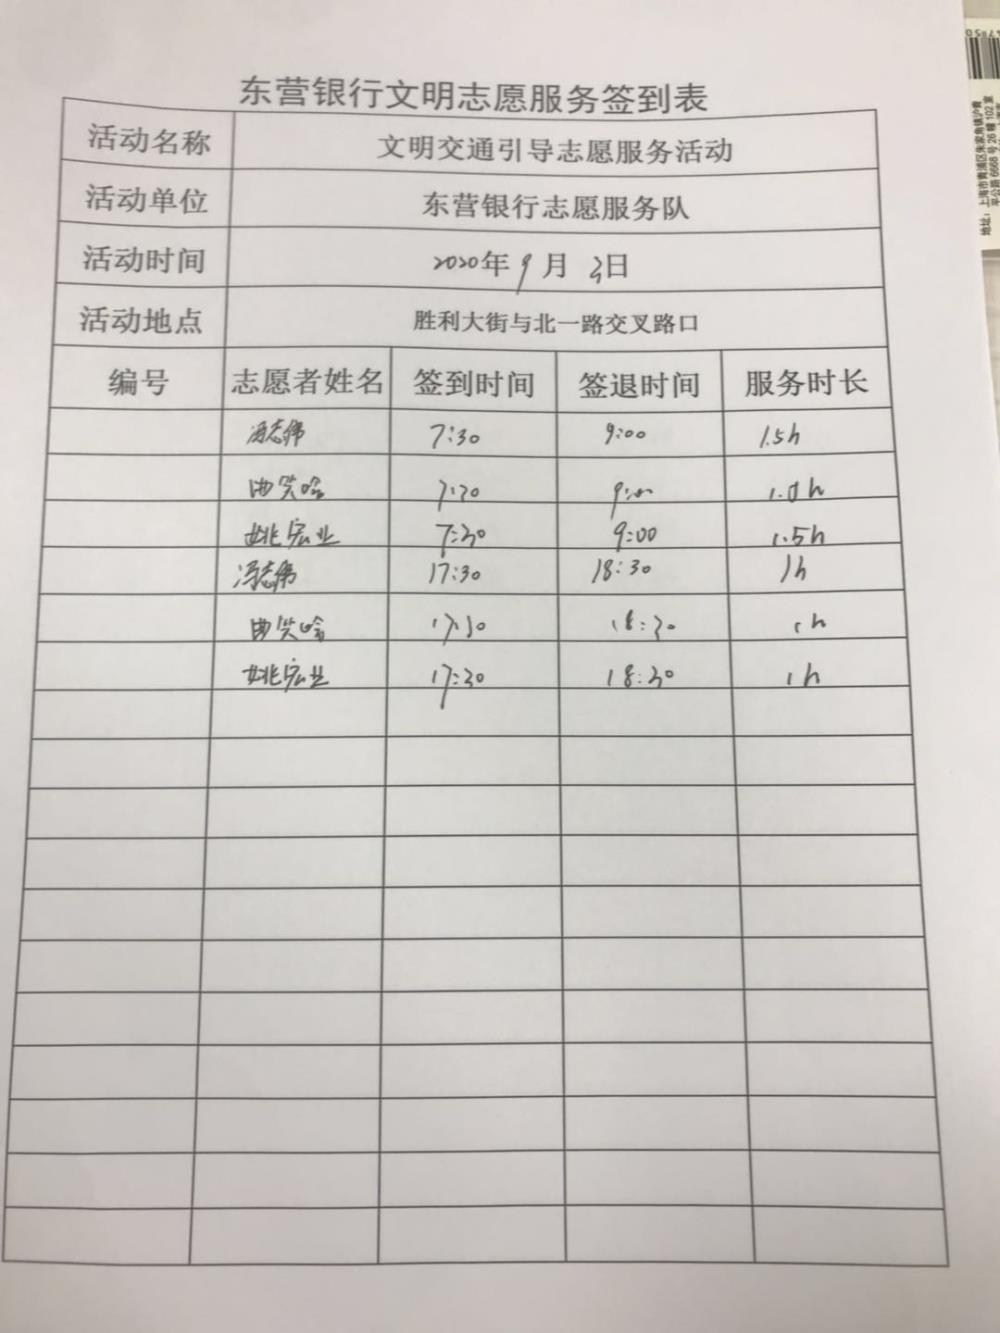 东营银行文明志愿服务签到表
活动名称 文明交通引导志愿服务活动
活动单位 东营银行志愿服务队
活动时间 2020年9月3日
活动地点 胜利大街与北一路交叉路口
编号 志愿者姓名 签到时间 签退时间 服务时长
冯志伟 7:30 9:00 1.5h
曲笑 7:30 9:00
姚宏业 7:30 9:00 1.5h
冯志伟 17:30 18:30 1h
曲笑 17:30 18:30 1h
姚宏业 17:30 18:30 1h
地址：上海市青浦区朱家角镇沪青
平公路6668号26幢102室